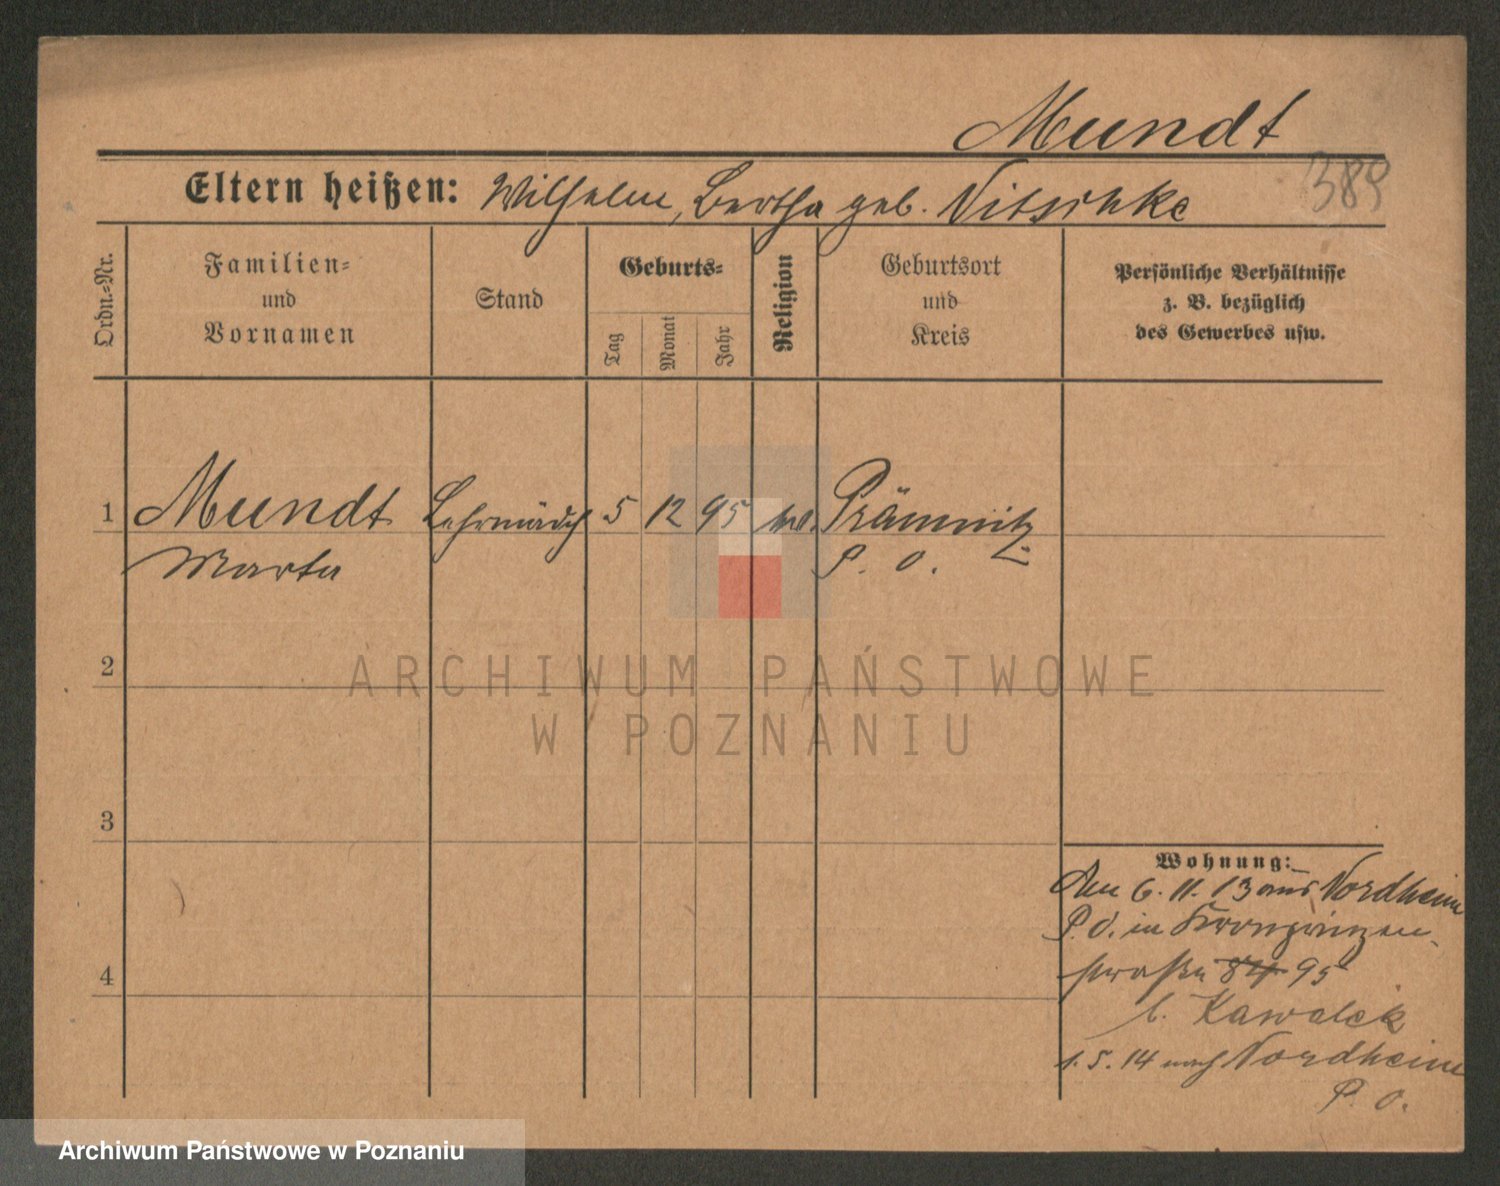 Mundt
389
Eltern heißen: Wilhelm, Bertha geb. Nitschke
Ordn.=Nr.
Familien=
und
Vornamen
Stand
Geburts=
Tag
Monat
Jahr
Religion
Geburtsort
und
Kreis
Persönliche Verhältnisse
z. B. bezüglich
des Gewerbes usw.
1 Mundt Lehrmädch 5 12 95 Prämnitz
Marta P. O.
2
ARCHIWUM PAŃSTWOWE
W POZNANIU
3
Wohnung:
Am 6. 11. 13 aus Nordheim
P. O. in Kronprinzen-
straße 84 95
b. Kawalek
4
1. 5. 14 nach Nordheim
P. O.
Archiwum Państwowe w Poznaniu